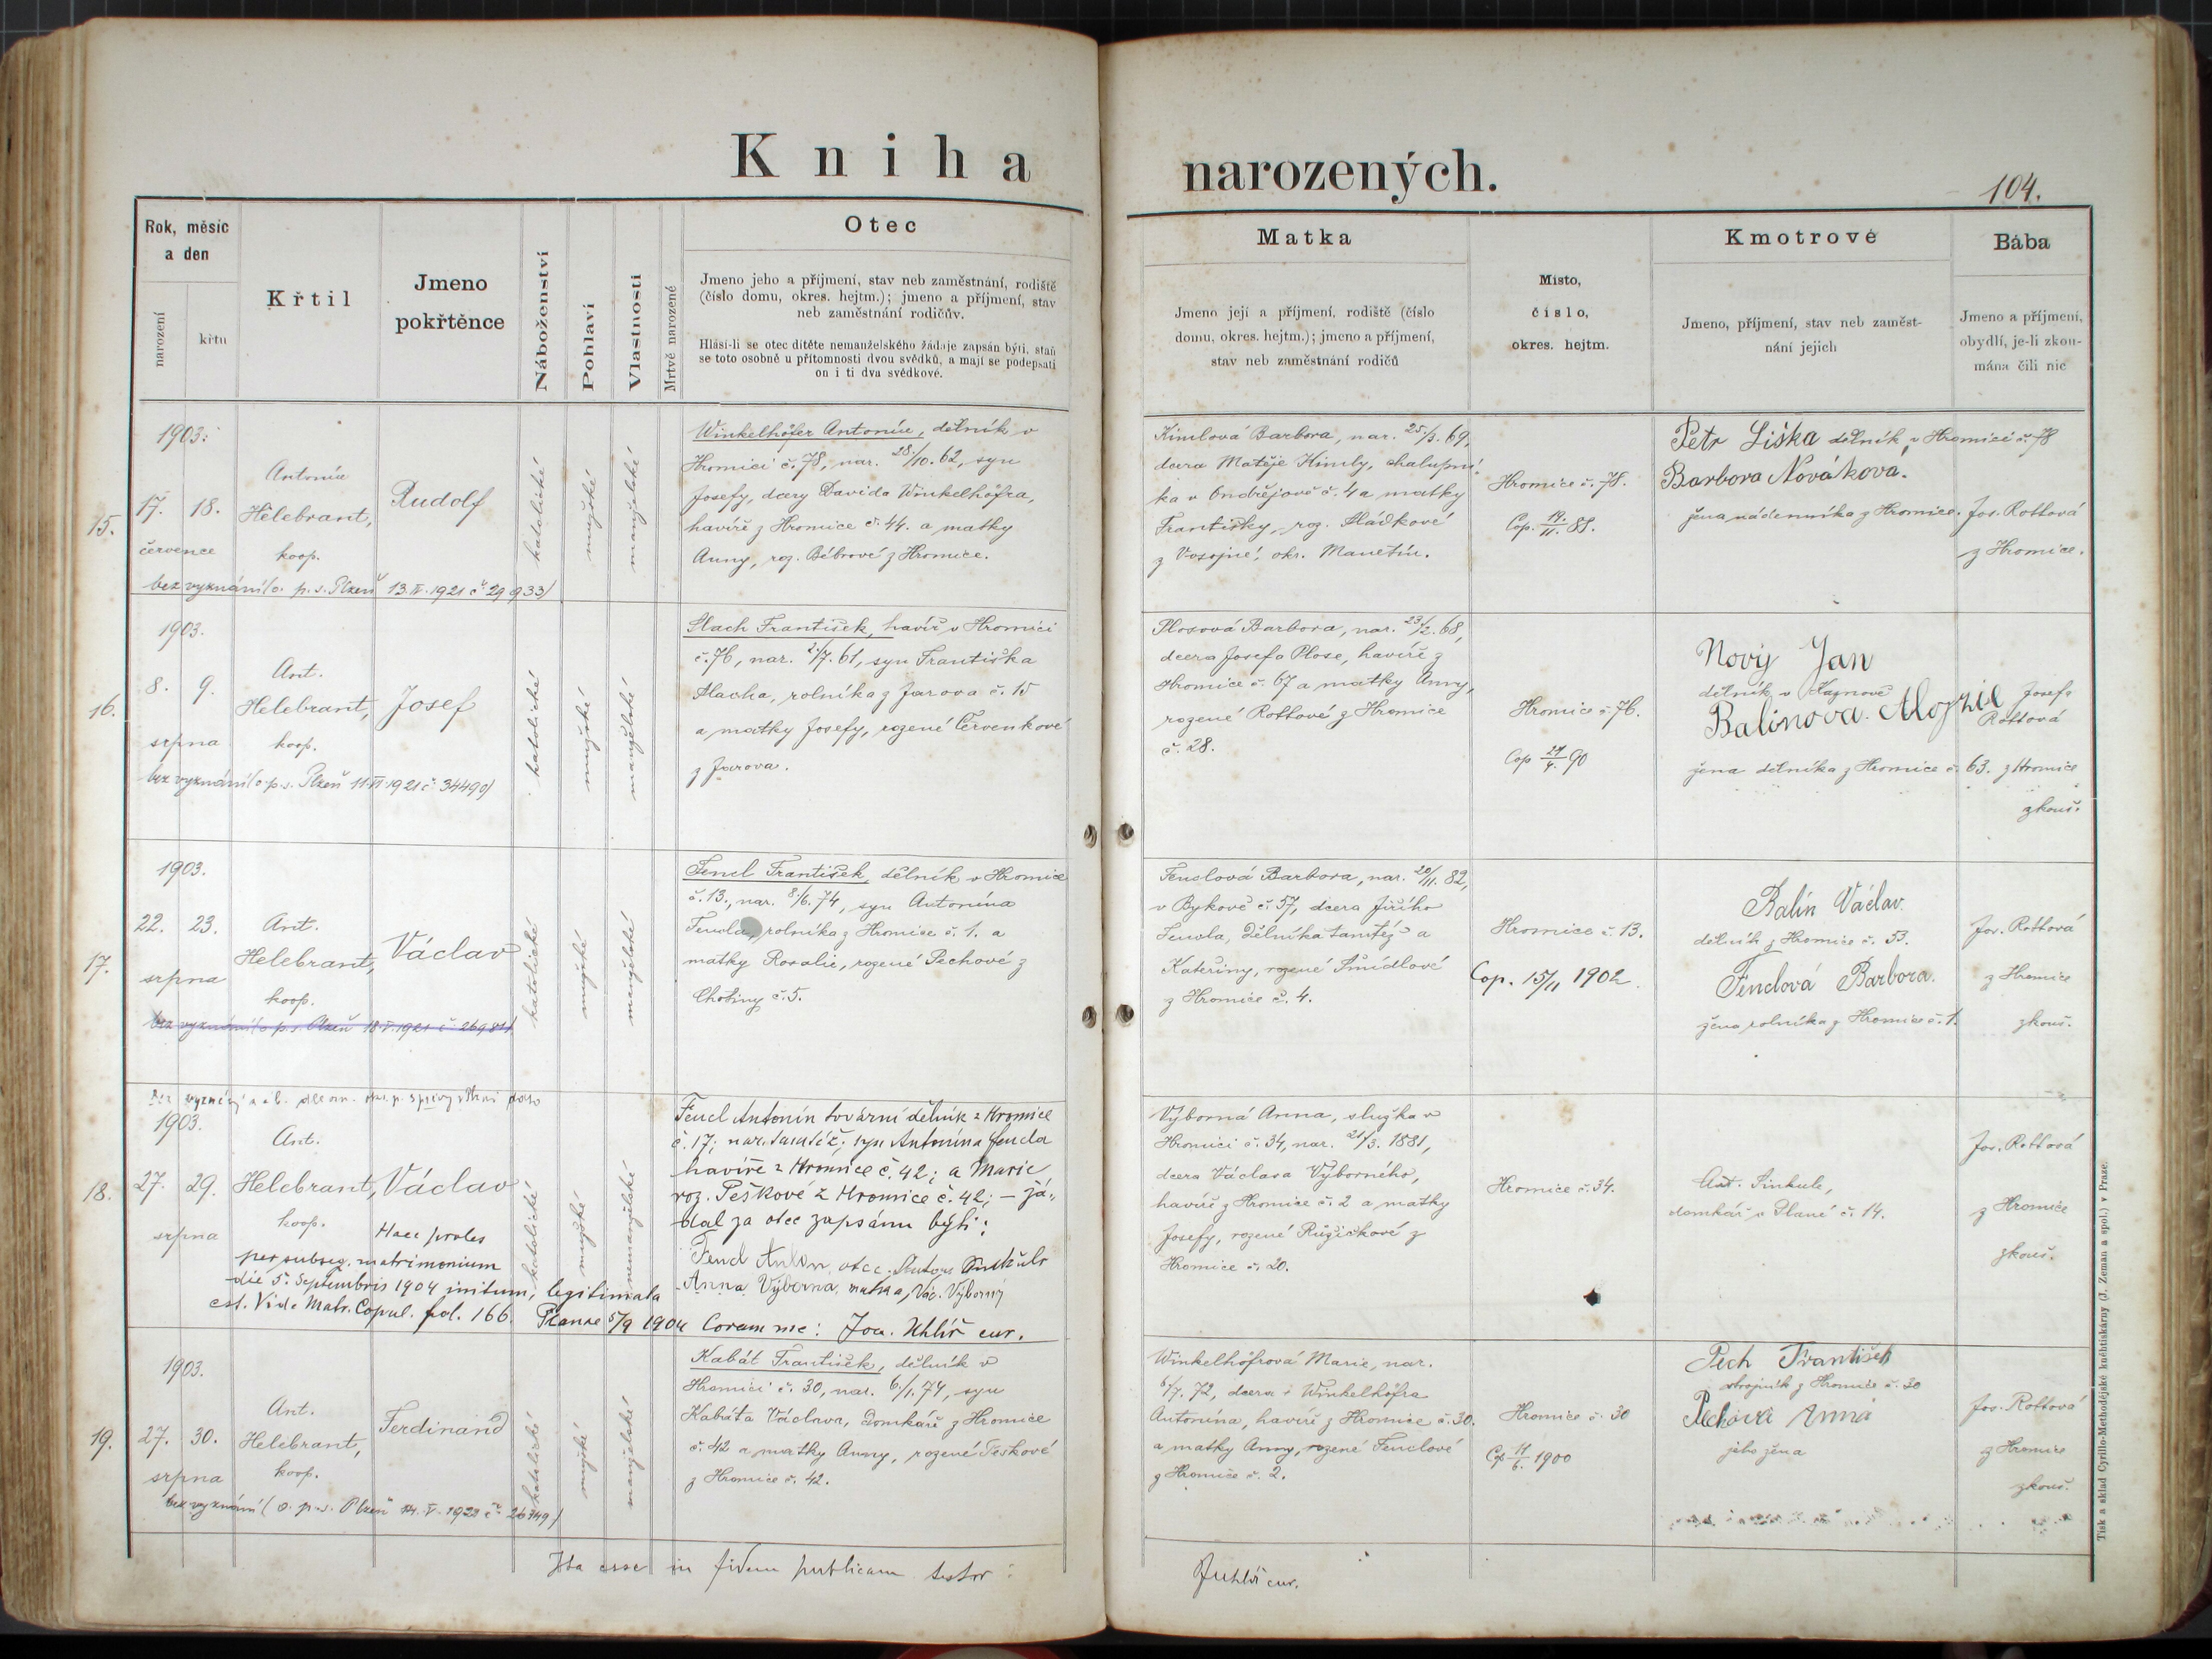 Kniha narozených.
104.
Rok, měsíc
a den
narození
křtu
Křtil
Jmeno
pokřtěnce
Náboženství
Pohlaví
Vlastnosti
Mrtvě narozené
Otec
Jmeno jeho a příjmení, stav neb zaměstnání, rodiště
(číslo domu, okres. hejtm.); jmeno a příjmení, stav
neb zaměstnání rodičův.
Hlásí-li se otec dítěte nemanželského žádaje zapsán býti, staň
se toto osobně u přítomnosti dvou svědků, a mají se podepsati
on i ti dva svědkové.
Matka
Jmeno její a příjmení, rodiště (číslo
domu, okres. hejtm.); jmeno a příjmení,
stav neb zaměstnání rodičů
Místo,
číslo,
okres. hejtm.
Kmotrové
Jmeno, příjmení, stav neb zaměst-
nání jejich
Bába
Jmeno a příjmení,
obydlí, je-li zkou-
mána čili nic
15.
1903.
17. 18.
července
Antonín
Helebrant,
koop.
Rudolf
katolické
mužské
manželské
bez vyznání (o. p. s. Plzeň 13.IV.1921 č 29933)
Winkelhöfer Antonín, dělník v
Hromici č. 78, nar. 28/10. 62, syn
Josefy, dcery Davida Winkelhöfra,
havíře z Hromice č. 44. a matky
Anny, roz. Bébrové z Hromice.
Kimlová Barbora, nar. 25/3. 69,
dcera Matěje Kimly, chalupní-
ka v Ondřejově č. 4 a matky
Františky, roz. Hládkové
z Vosojné, okr. Manetín.
Hromice č. 78.
Cop. 19./11. 88.
Petr Liška dělník v Hromici č. 78
Barbora Nováková.
žena nádenníka z Hromice.
Jos. Rottová
z Hromice.
16.
1903.
8. 9.
srpna
Ant.
Helebrant,
koop.
Josef
katolické
mužské
manželské
bez vyznání (o. p. s. Plzeň 11.VI.1921 č. 34490)
Hach František, havíř v Hromici
č. 76, nar. 2/7. 61, syn Františka
Hacha, rolníka z Jarova č. 15
a matky Josefy, rozené Červenkové
z Jarova.
Plosová Barbora, nar. 23/12. 68,
dcera Josefa Plose, havíře z
Hromice č. 67 a matky Anny,
rozené Rottové z Hromice
č. 28.
Hromice č. 76.
Cop 27/4. 90
Nový Jan
dělník v Kaznově
Balínová Alojzie
žena dělníka z Hromice č. 63.
Josefa
Rottová
z Hromice
zkouš.
17.
1903.
22. 23.
srpna
Ant.
Helebrant,
koop.
Václav
katolické
mužské
manželské
bez vyznání (o p. s. Plzeň 18.V.1921 č 26981)
Fencl František, dělník v Hromice
č. 13., nar. 8/6. 74, syn Antonína
Fencla, rolníka z Hromice č. 1. a
matky Rosalie, rozené Pechové z
Chotiny č. 5.
Fenclová Barbora, nar. 20/11. 82,
v Bykově č. 57, dcera Jiřího
Fencla, dělníka tamtéž a
Kateřiny, rozené Šmídlové
z Hromice č. 4.
Hromice č. 13.
Cop. 15/11 1902.
Balín Václav.
dělník z Hromice č. 53.
Fenclová Barbora.
žena rolníka z Hromice č. 1.
Jos. Rottová
z Hromice
zkouš.
18.
1903.
27. 29.
srpna
Ant.
Helebrant,
koop.
Václav
katolické
mužské
nemanželské
Haec proles
per subseq. matrimonium
die 5. Septembris 1904 initum, legitimata
est. Vide Matr. Copul. fol. 166. Planae 5/9 1904 Coram me: Joa. Uhlíř cur.
Fencl Antonín tovární dělník z Hromice
č. 17; nar. tamtéž; syn Antonína Fencla
havíře z Hromice č. 42; a Marie
roz. Peškové z Hromice č. 42; – žá-
dal za otce zapsánu býti:
Fencl Anton, otec
Anna Výborná, matka, Vác. Výborný
Výborná Anna, služka v
Hromici č. 34, nar. 21/3. 1881,
dcera Václava Výborného,
havíře z Hromice č. 2 a matky
Josefy, rozené Růžičkové z
Hromice č. 20.
Hromice č. 34.
Ant. Sinkule,
domkář v Plané č. 14.
Jos. Rottová
z Hromice
zkouš.
19.
1903.
27. 30.
srpna
Ant.
Helebrant,
koop.
Ferdinand
katolické
mužské
manželské
bez vyznání (o. p. s. Plzeň 14. V. 1921 č 26349)
Kabát František, dělník v
Hromici č. 30, nar. 6/1. 74, syn
Kabáta Václava, domkáře z Hromice
č. 42 a matky Anny, rozené Peškové
z Hromice č. 42.
Winkelhöfrová Marie, nar.
6/7. 72, dcera Winkelhöfra
Antonína, havíře z Hromice č. 30.
a matky Anny, rozené Fenclové
z Hromice č. 2.
Hromice č. 30
Cop 11/6. 1900
Pech František
strojník z Hromice č. 30
Pechová Anna
jeho žena
Jos. Rottová
z Hromice
zkouš.
Ita esse in fidem publicam testor:
J Uhlíř cur.
Tisk a sklad Cyrillo-Methodějské knihtiskárny (J. Zeman a spol.) v Praze.